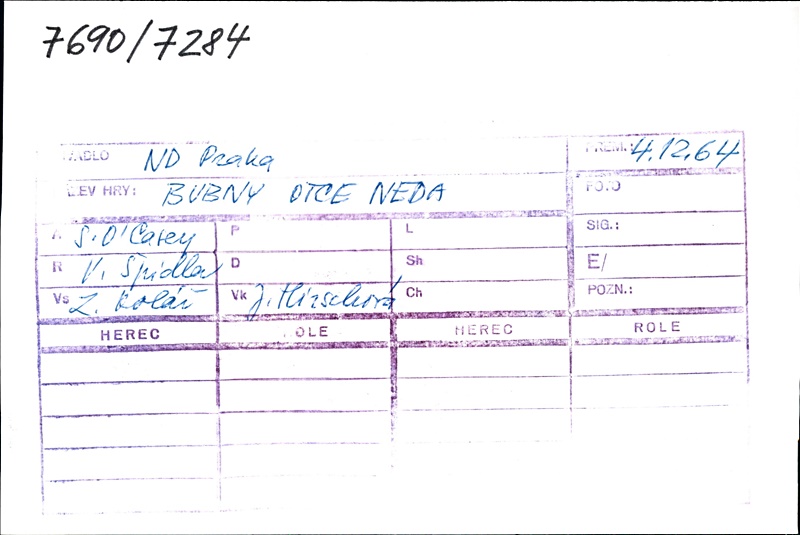 7690/7284
ND Praha PREM.: 4.12.64
HRY: BUBNY OTCE NEDA FOTO
A S. O'Casey P L SIG.:
R V. Špidla D Sh E/
Vs Z. Kolář Vk J. Hirschová Ch POZN.:
HEREC ROLE HEREC ROLE